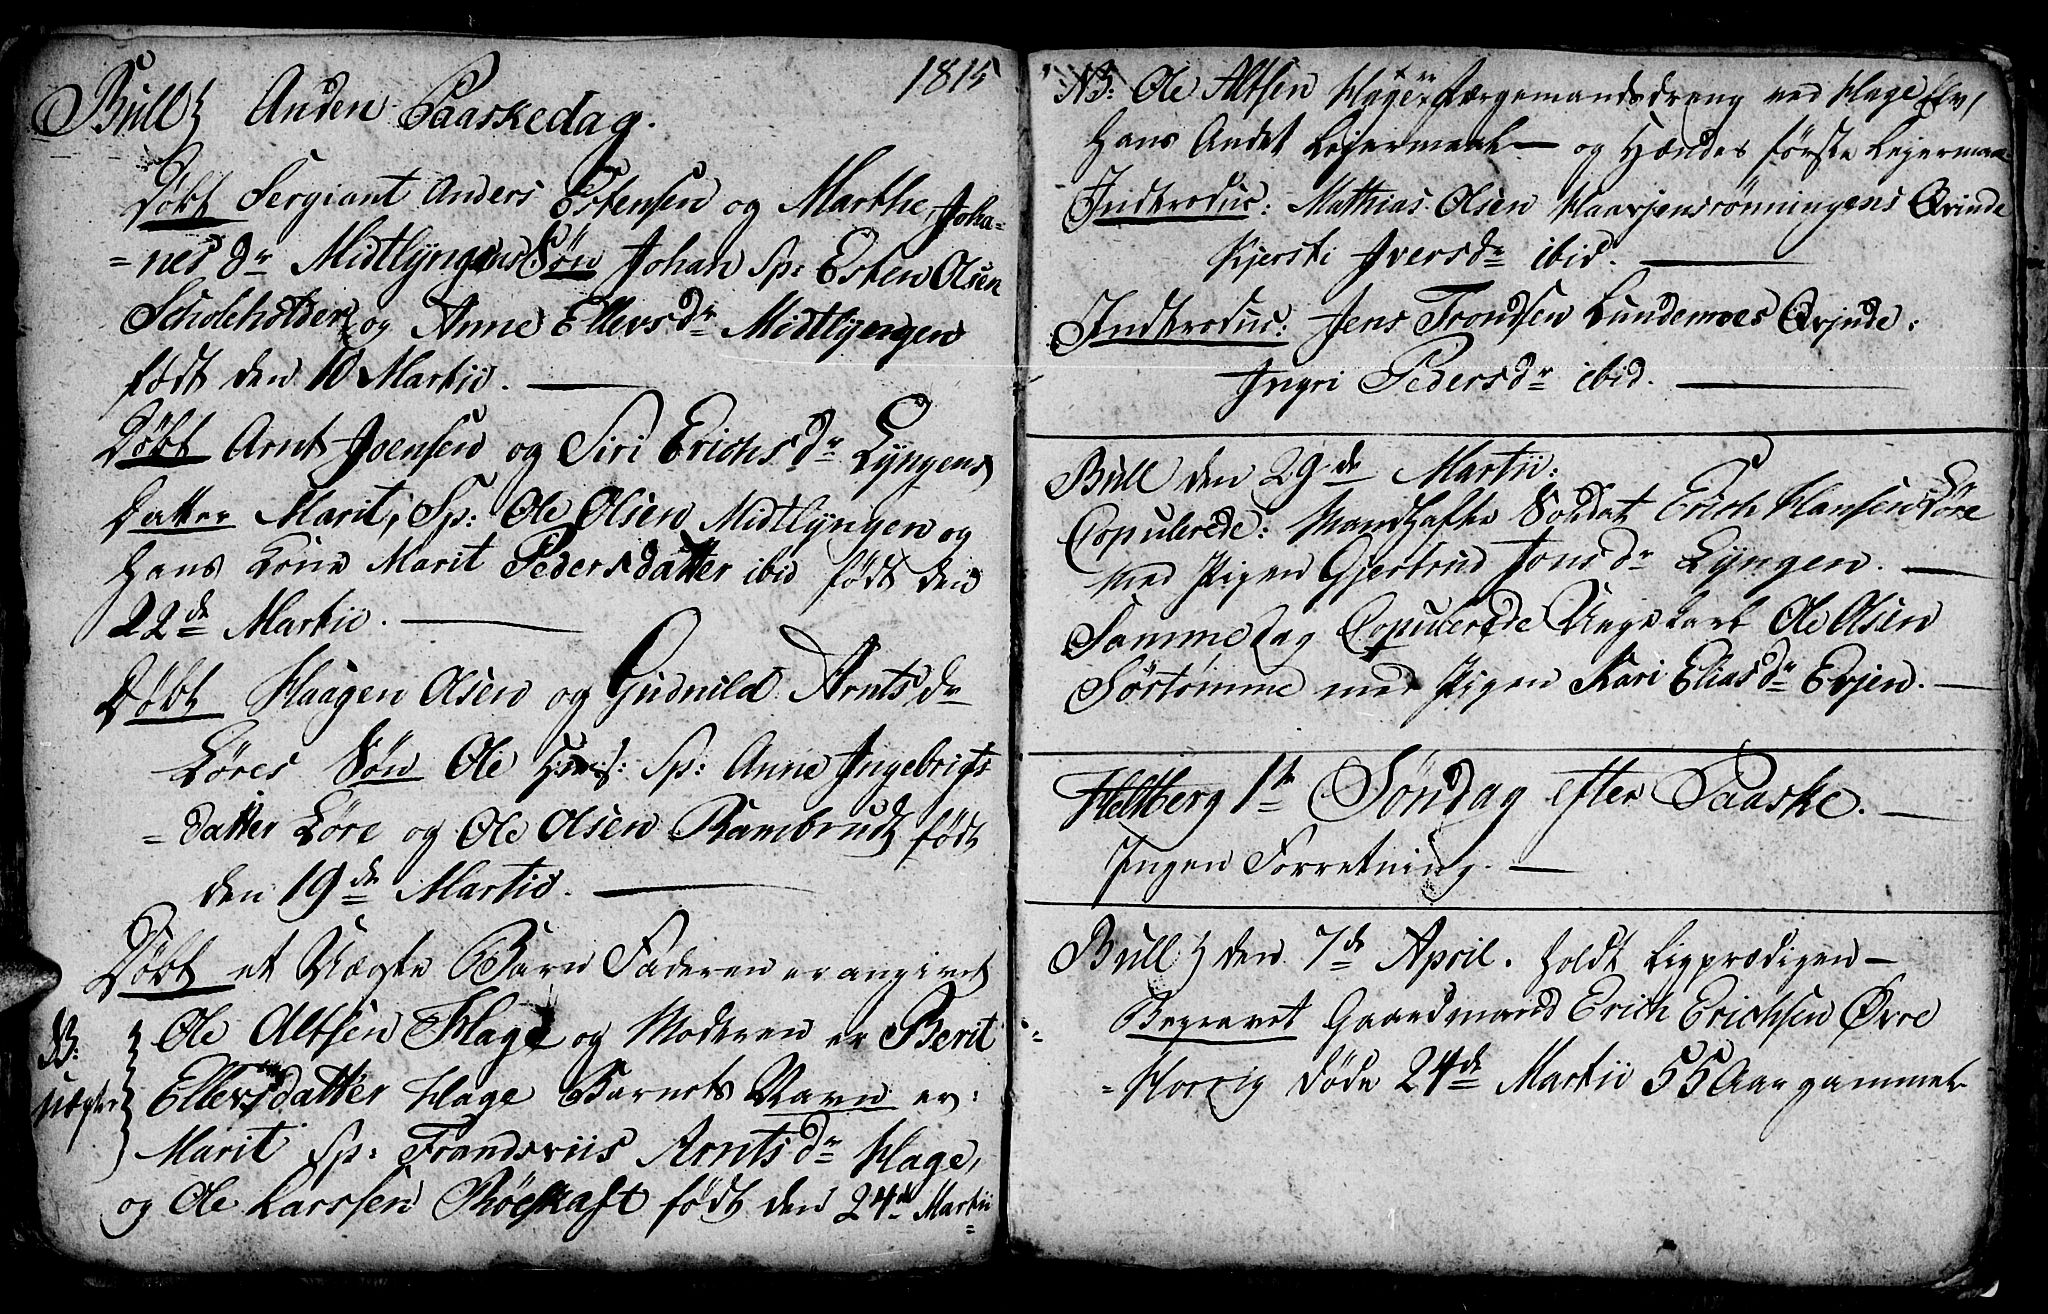 1815
Bull Anden Paaskedag.
Døbt Sergiant Anders Estensen og Marthe Joha=
=nes dr Midtlyngens Søn Johan Sp: Esten Olsen
Scholeholder og Anne Ellevsdr Midtlyngen
født den 10 Martii.
Døbt Arnt Joensen og Siri Erichsdr Lyngens
Datter Marit, Sp: Ole Olsen Midtlyngen og
Hans Kone Marit Pedersdatter ibid født den
22de Martii.
Døbt Haagen Olsen og Gudnild Arntsdr
Løres Søn Ole Sp: Anne Ingebrigts
=datter Løre og Ole Olsen Rambrudt født
den 19de Martii.
Døbt et Uægte Barn Faderen er angivet
NB: Uægte
Ole Altsen Hage og Moderen er Berit
Ellevsdatter Hage Barnets Navn er:
Marit Sp: Frandsviis Arntsdr Hage,
og Ole Larssen født den 24de Martii
NB: Ole Altsen Hage er Færgemandsdreng ved Hage Elv,
Hans Andet Lejermaal – og Hændes første Lejermaa
Introduc: Mathias Olsen Haarjensrønningens Qvinde
Kjersti Iversdr ibid.
Introduc: Jens Trondsen Lundemoes Qvinde:
Ingri Pedersdr ibid.
Bull den 29de Martii:
Copulerede: Mandhafte Soldat Erich Hansen Løre
med Pigen Gjertrud Jonsdr Lyngen.
Sammedag Copulerede Ungekarl Ole Olsen
Sørtømme med Pigen Kari Eliasdr Evjen.
Heltberg 1te Søndag efter Paaske.
Ingen Forretning.
Bull den 7de April. Holdt Ligprædigen –
Begravet Gaardmand Erich Erichsen Øvre
=Horrig døde 24de Martii 55 Aar gammel